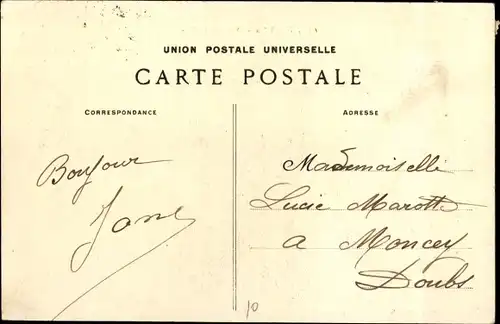 UNION POSTALE UNIVERSELLE
CARTE POSTALE
CORRESPONDANCE
ADRESSE
Bonjour
Mademoiselle
Lucie Marotte
a Moncey
Doubs
10